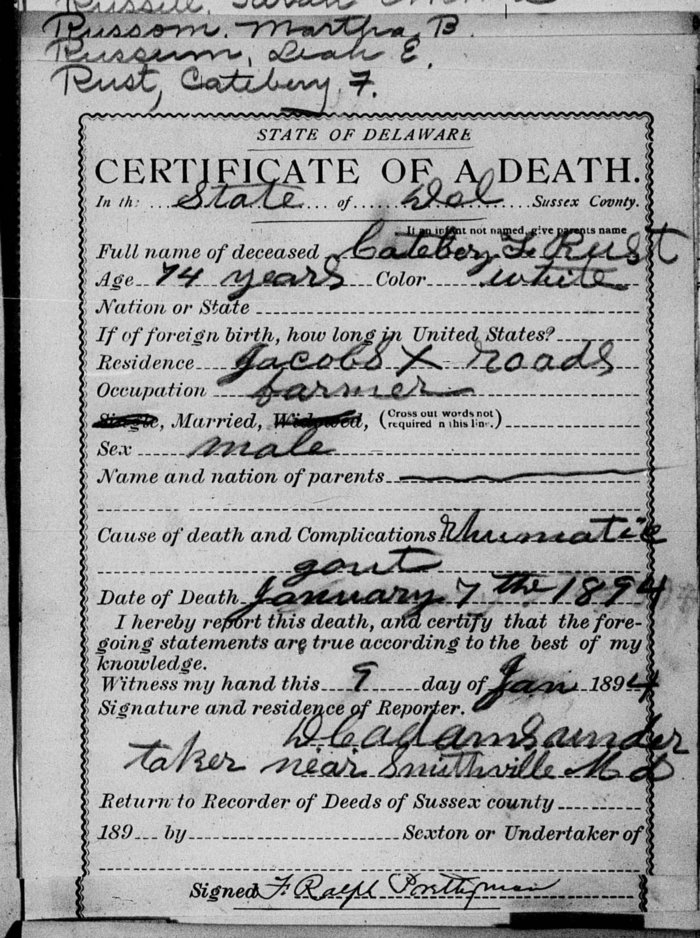 Russom, Martha B.
Russum, Leah E.
Rust, Catebery F.
STATE OF DELAWARE
CERTIFICATE OF A DEATH.
In th: State of Del Sussex County.
If an infant not named, give parents name
Full name of deceased Catebery F. Rust
Age 74 years Color white
Nation or State
If of foreign birth, how long in United States?
Residence Jacobs X roads
Occupation farmer
Single, Married, Widowed, (Cross out words not
required n this line.)
Sex male
Name and nation of parents
Cause of death and Complications Rhumatic
gout
Date of Death January 7 the 1894
I hereby report this death, and certify that the fore-
going statements are true according to the best of my
knowledge.
Witness my hand this 9 day of Jan 1894
Signature and residence of Reporter.
D C adams under
taker near Smithville Md
Return to Recorder of Deeds of Sussex county
189 by Sexton or Undertaker of
Signed F. Ralph Prettyman